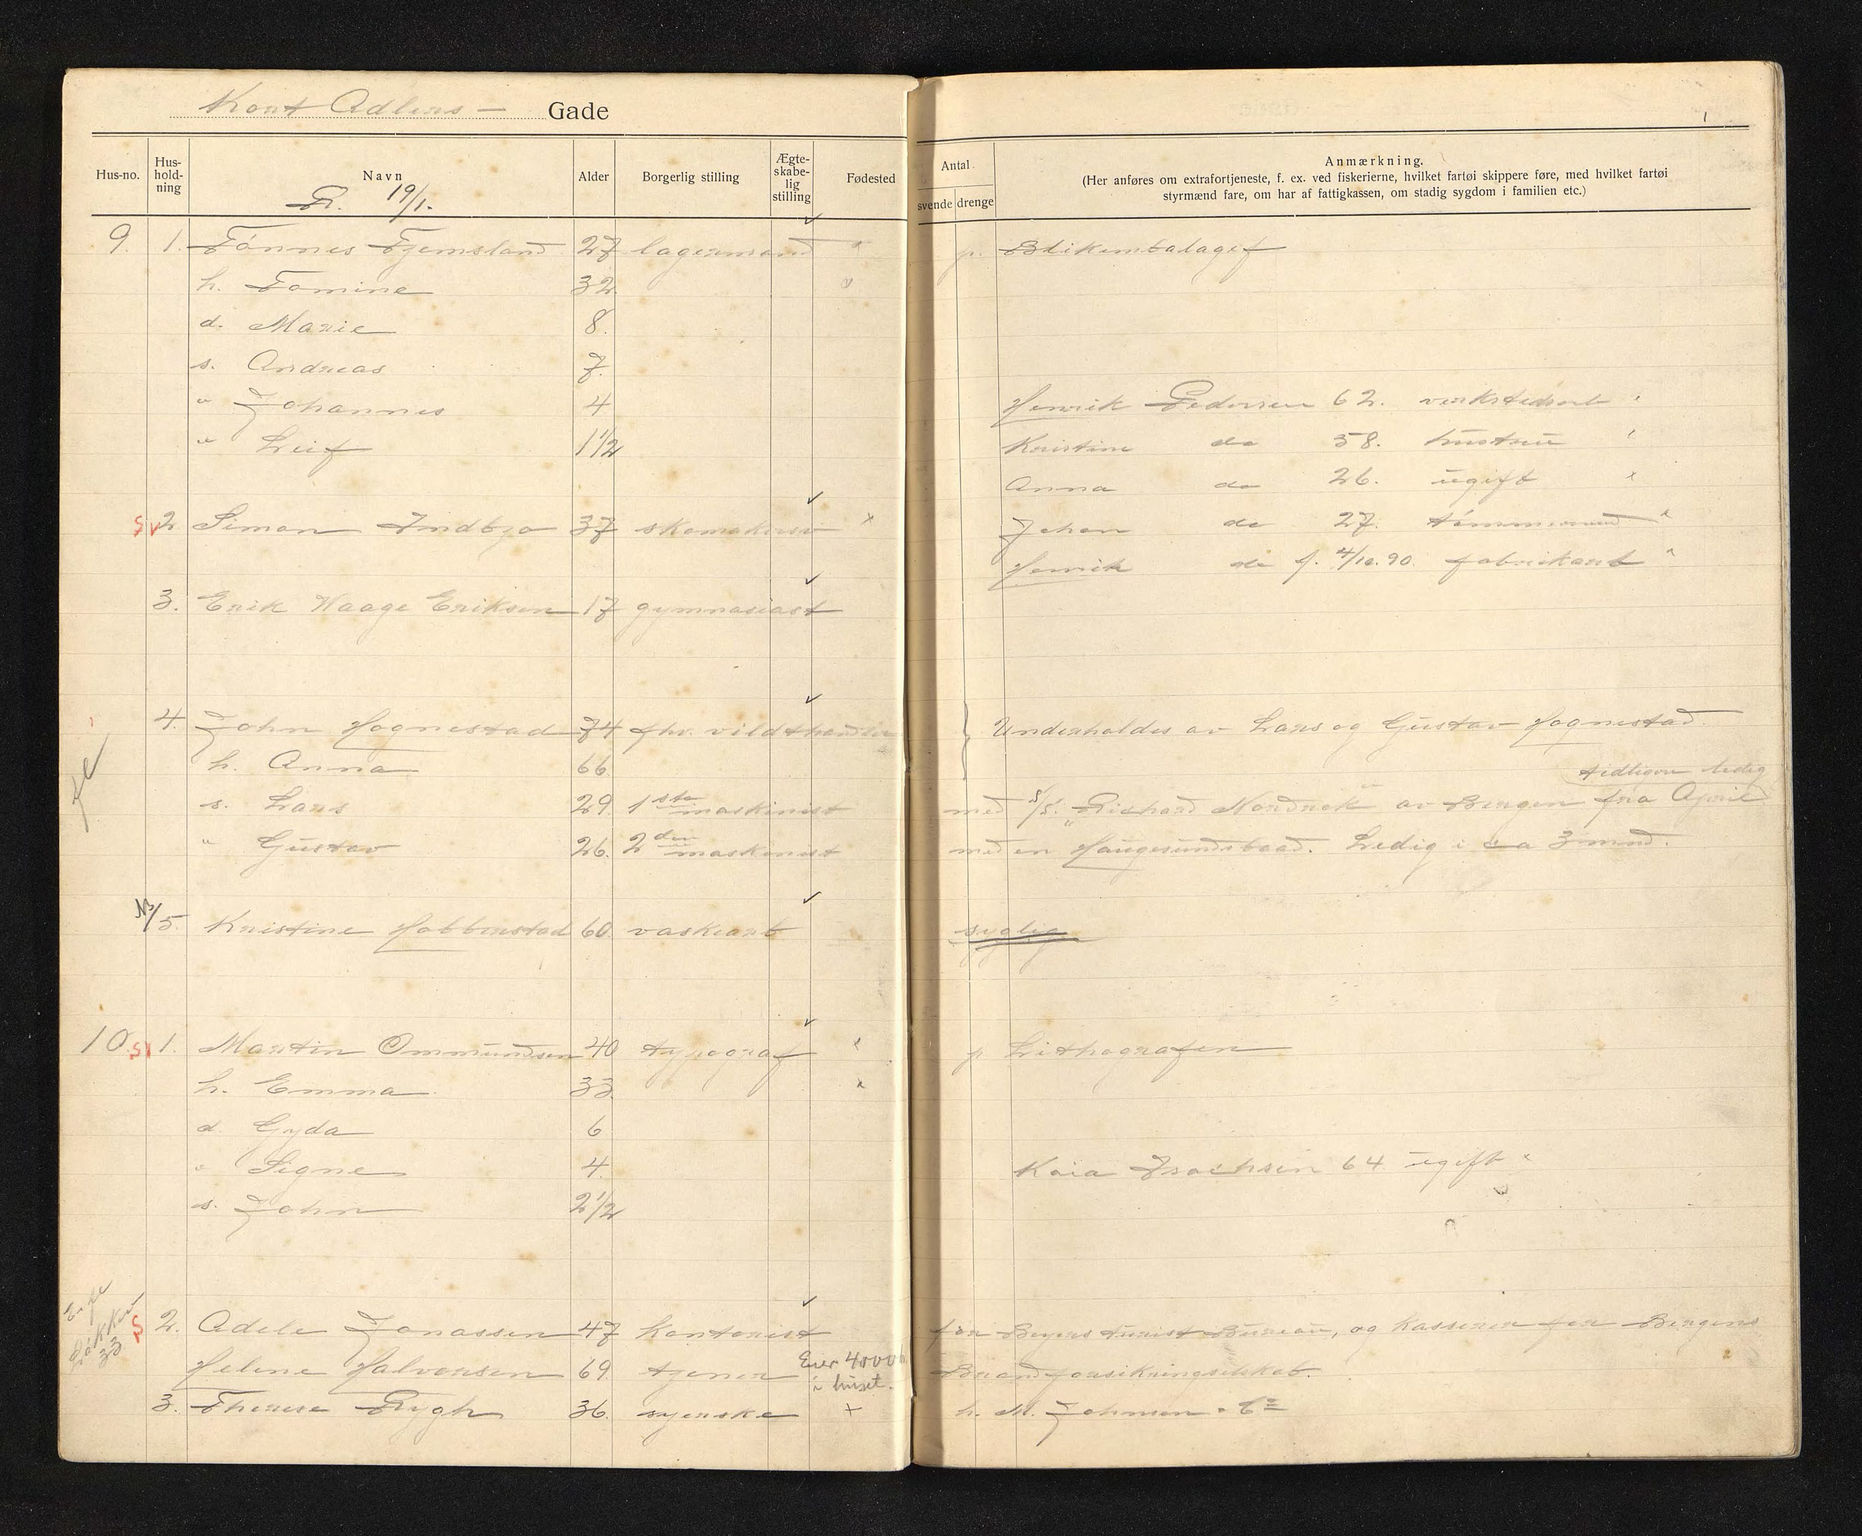 Kort Adlers - Gade
1
Hus-no. Hus-hold-ning Navn Alder Borgerlig stilling Ægte-skabe-lig stilling Fødested
R. 19/1.
Antal
svende drenge
Anmærkning.
(Her anføres om extrafortjeneste, f. ex. ved fiskerierne, hvilket fartøi skippere føre, med hvilket fartøi
styrmænd fare, om har af fattigkassen, om stadig sygdom i familien etc.)
9. 1. Tønnes Tjemsland 27 lagermand " p. Blikemballagef
h. Tomine 32
d. Marie 8.
s. Andreas 7.
" Johannes 4 Henrik Pedersen 62. verkstedsarb "
" Leif 1 1/2 Kristine do 58. hustru "
Anna do 26. ugift "
S v 2. Simon Indbjo 37 skomakersv x Johan do 27. tømmermd "
Henrik do f. 4/10.90. fabrikarb "
3. Erik Haage Eriksen 17 gymnasiast
4. John Hognestad 74 fhv. vildthandler Underholdes av Lars og Gustav Hognestad
h. Anna 66 tidligere ledig
s. Lars 29. 1ste maskinist med S/S. "Richard Nordraak" av Bergen fra April
" Gustav 26. 2den maskinist med en Haugesundsbaad. Ledig i ca 3 mnd.
5. Kristine Hobberstad 60. vaskearb syglig
10. Sv 1. Martin Ommundsen 40 typograf " p Lithografen
h. Emma 33 "
d. Gyda 6
" Signe 4. Kaia Isachsen 64 ugift "
s. John 2 1/2
S 2. Adele Jonassen 47 kontorist for Beyers turist Bureau, og kasserer for Bergens
Løkkev
33
Helene Halvorsen 69. tjener Eier 4000 Brandforsikringselskab.
i huset.
3. Therese Rygh 36. syerske + h. M. Johnsen & Co